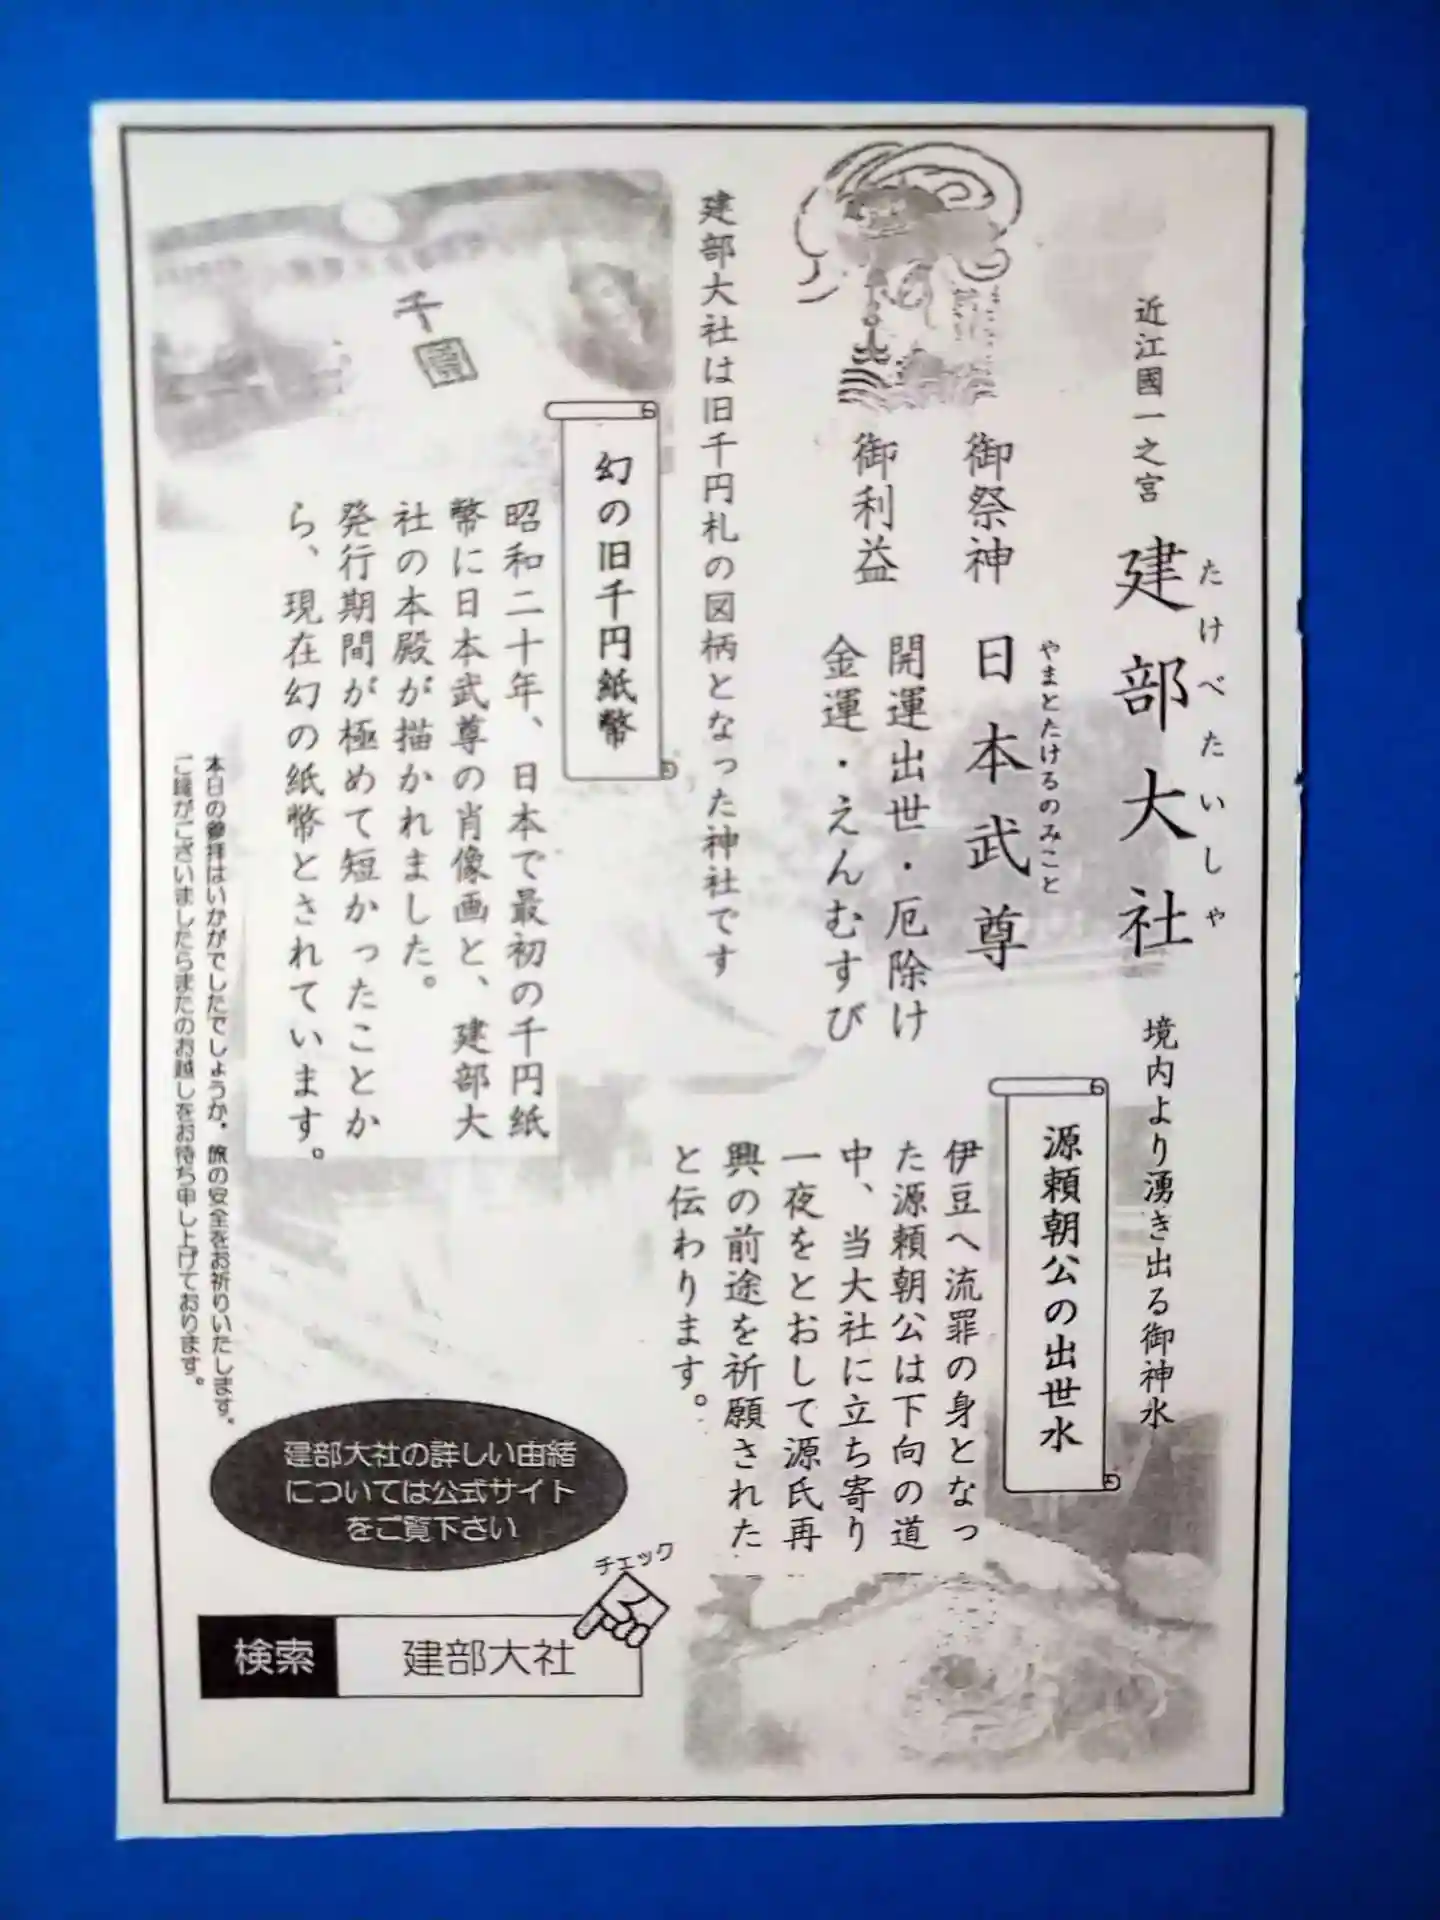 近江國一之宮 建部大社
たけべたいしゃ
御祭神 日本武尊
やまとたけるのみこと
御利益 開運出世・厄除け
金運・えんむすび
建部大社は旧千円札の図柄となった神社です
千圓
幻の旧千円紙幣
昭和二十年、日本で最初の千円紙
幣に日本武尊の肖像画と、建部大
社の本殿が描かれました。
発行期間が極めて短かったことか
ら、現在幻の紙幣とされています。
境内より湧き出る御神水
源頼朝公の出世水
伊豆へ流罪の身となっ
た源頼朝公は下向の道
中、当大社に立ち寄り
一夜をとおして源氏再
興の前途を祈願された
と伝わります。
本日の参拝はいかがでしたでしょうか。旅の安全をお祈りいたします。
ご縁がございましたらまたのお越しをお待ち申し上げております。
建部大社の詳しい由緒
については公式サイト
をご覧下さい
チェック
検索 建部大社